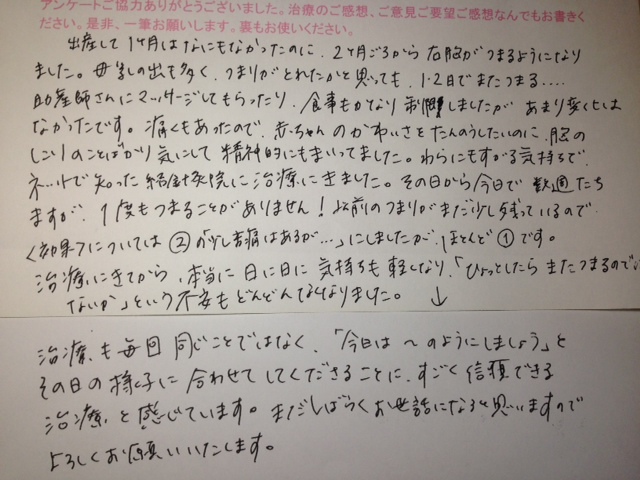 アンケートご協力ありがとうございました。治療のご感想、ご意見ご要望ご感想なんでもお書きく
ださい。是非、一筆お願いします。裏もお使いください。
出産して1ヶ月はなにもなかったのに、2ヶ月ごろから右胸がつまるようになり
ました。母乳の出も多く、つまりがとれたかと思っても、1、2日でまたつまる‥‥
助産師さんにマッサージしてもらったり、食事もかなり制限しましたが あまり変化は
なかったです。痛くもあったので、赤ちゃんのかわいさをたんのうしたいのに、胸の
しこりのことばかり気にして精神的にもまいってました。わらにもすがる気持ちで、
ネットで知った 鍼灸院に治療にきました。その日から今日で 数週たち
ますが、1度もつまることがありません!以前のつまりがまだ少し残っているので
〈効果〉については②「少し苦痛はあるが…」にしましたが、ほとんど①です。
治療にきてから、本当に日に日に気持ちも軽くなり、「ひょっとしたら またつまるのでは
ないか」という不安もどんどんなくなりました。 ↓
治療も毎回同じことではなく、「今日は〜のようにしましょう」と
その日の様子に合わせてしてくださることに、すごく信頼できる
治療、と感じています。まだしばらくお世話になると思いますので
よろしくお願いいたします。